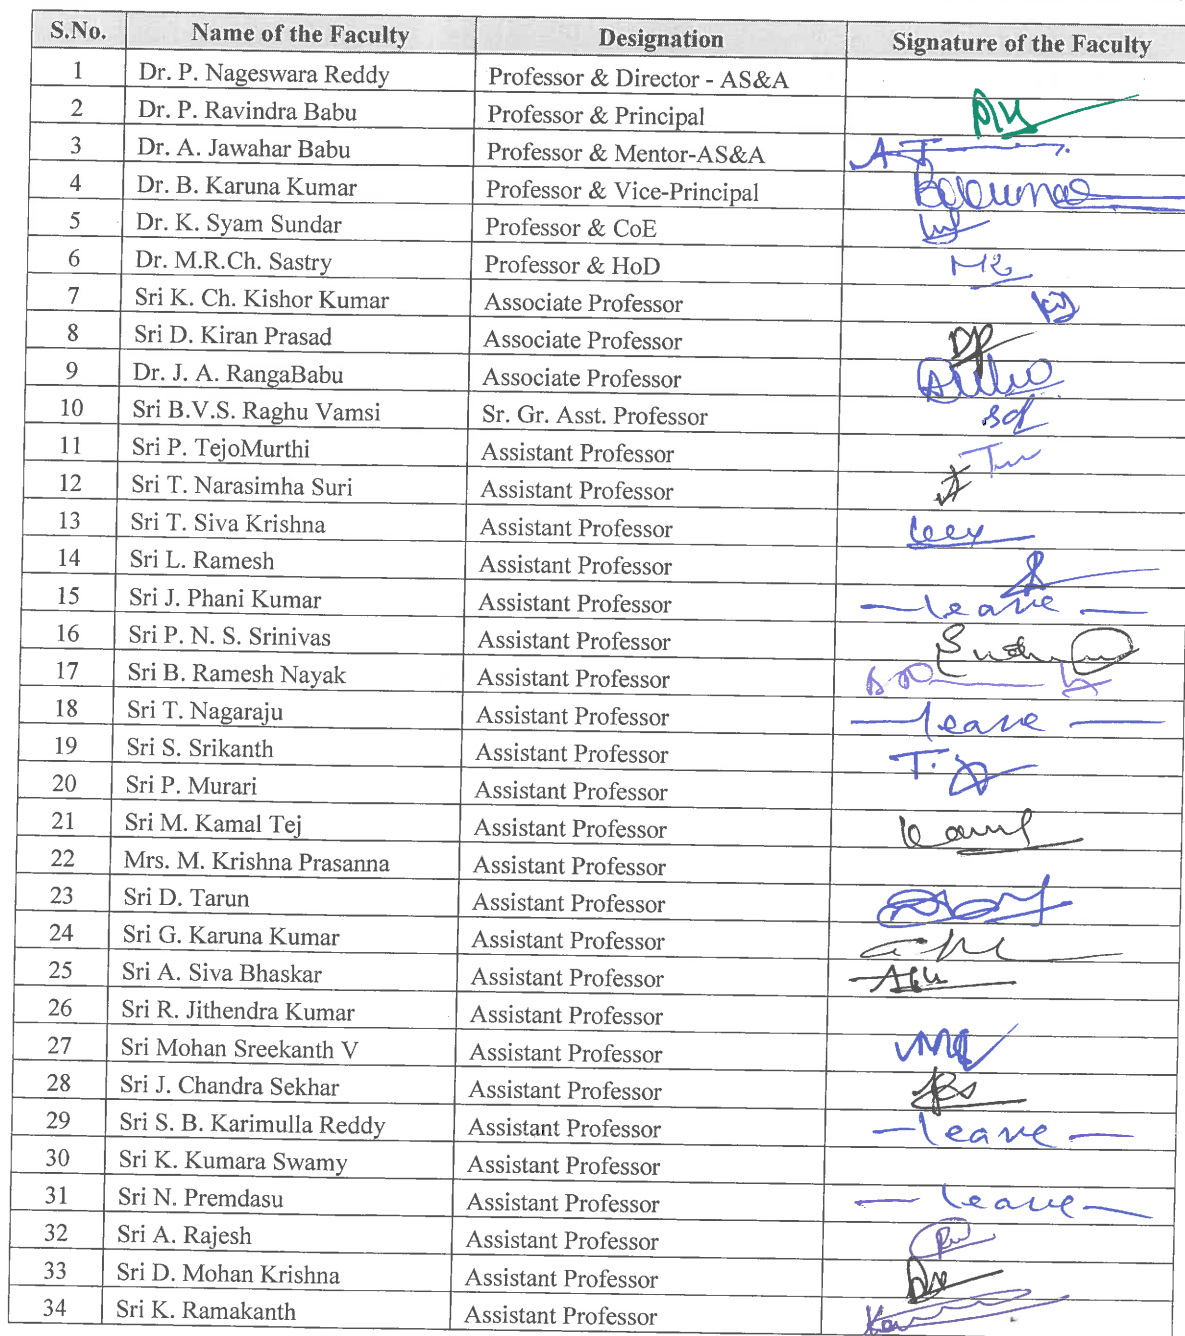 S.No. Name of the Faculty Designation Signature of the Faculty
1 Dr. P. Nageswara Reddy Professor & Director - AS&A
2 Dr. P. Ravindra Babu Professor & Principal
3 Dr. A. Jawahar Babu Professor & Mentor-AS&A
4 Dr. B. Karuna Kumar Professor & Vice-Principal
5 Dr. K. Syam Sundar Professor & CoE
6 Dr. M.R.Ch. Sastry Professor & HoD
7 Sri K. Ch. Kishor Kumar Associate Professor
8 Sri D. Kiran Prasad Associate Professor
9 Dr. J. A. RangaBabu Associate Professor
10 Sri B.V.S. Raghu Vamsi Sr. Gr. Asst. Professor
11 Sri P. TejoMurthi Assistant Professor
12 Sri T. Narasimha Suri Assistant Professor
13 Sri T. Siva Krishna Assistant Professor
14 Sri L. Ramesh Assistant Professor
15 Sri J. Phani Kumar Assistant Professor — leave —
16 Sri P. N. S. Srinivas Assistant Professor
17 Sri B. Ramesh Nayak Assistant Professor
18 Sri T. Nagaraju Assistant Professor — leave —
19 Sri S. Srikanth Assistant Professor
20 Sri P. Murari Assistant Professor
21 Sri M. Kamal Tej Assistant Professor
22 Mrs. M. Krishna Prasanna Assistant Professor
23 Sri D. Tarun Assistant Professor
24 Sri G. Karuna Kumar Assistant Professor
25 Sri A. Siva Bhaskar Assistant Professor
26 Sri R. Jithendra Kumar Assistant Professor
27 Sri Mohan Sreekanth V Assistant Professor
28 Sri J. Chandra Sekhar Assistant Professor
29 Sri S. B. Karimulla Reddy Assistant Professor — leave —
30 Sri K. Kumara Swamy Assistant Professor
31 Sri N. Premdasu Assistant Professor — leave —
32 Sri A. Rajesh Assistant Professor
33 Sri D. Mohan Krishna Assistant Professor
34 Sri K. Ramakanth Assistant Professor